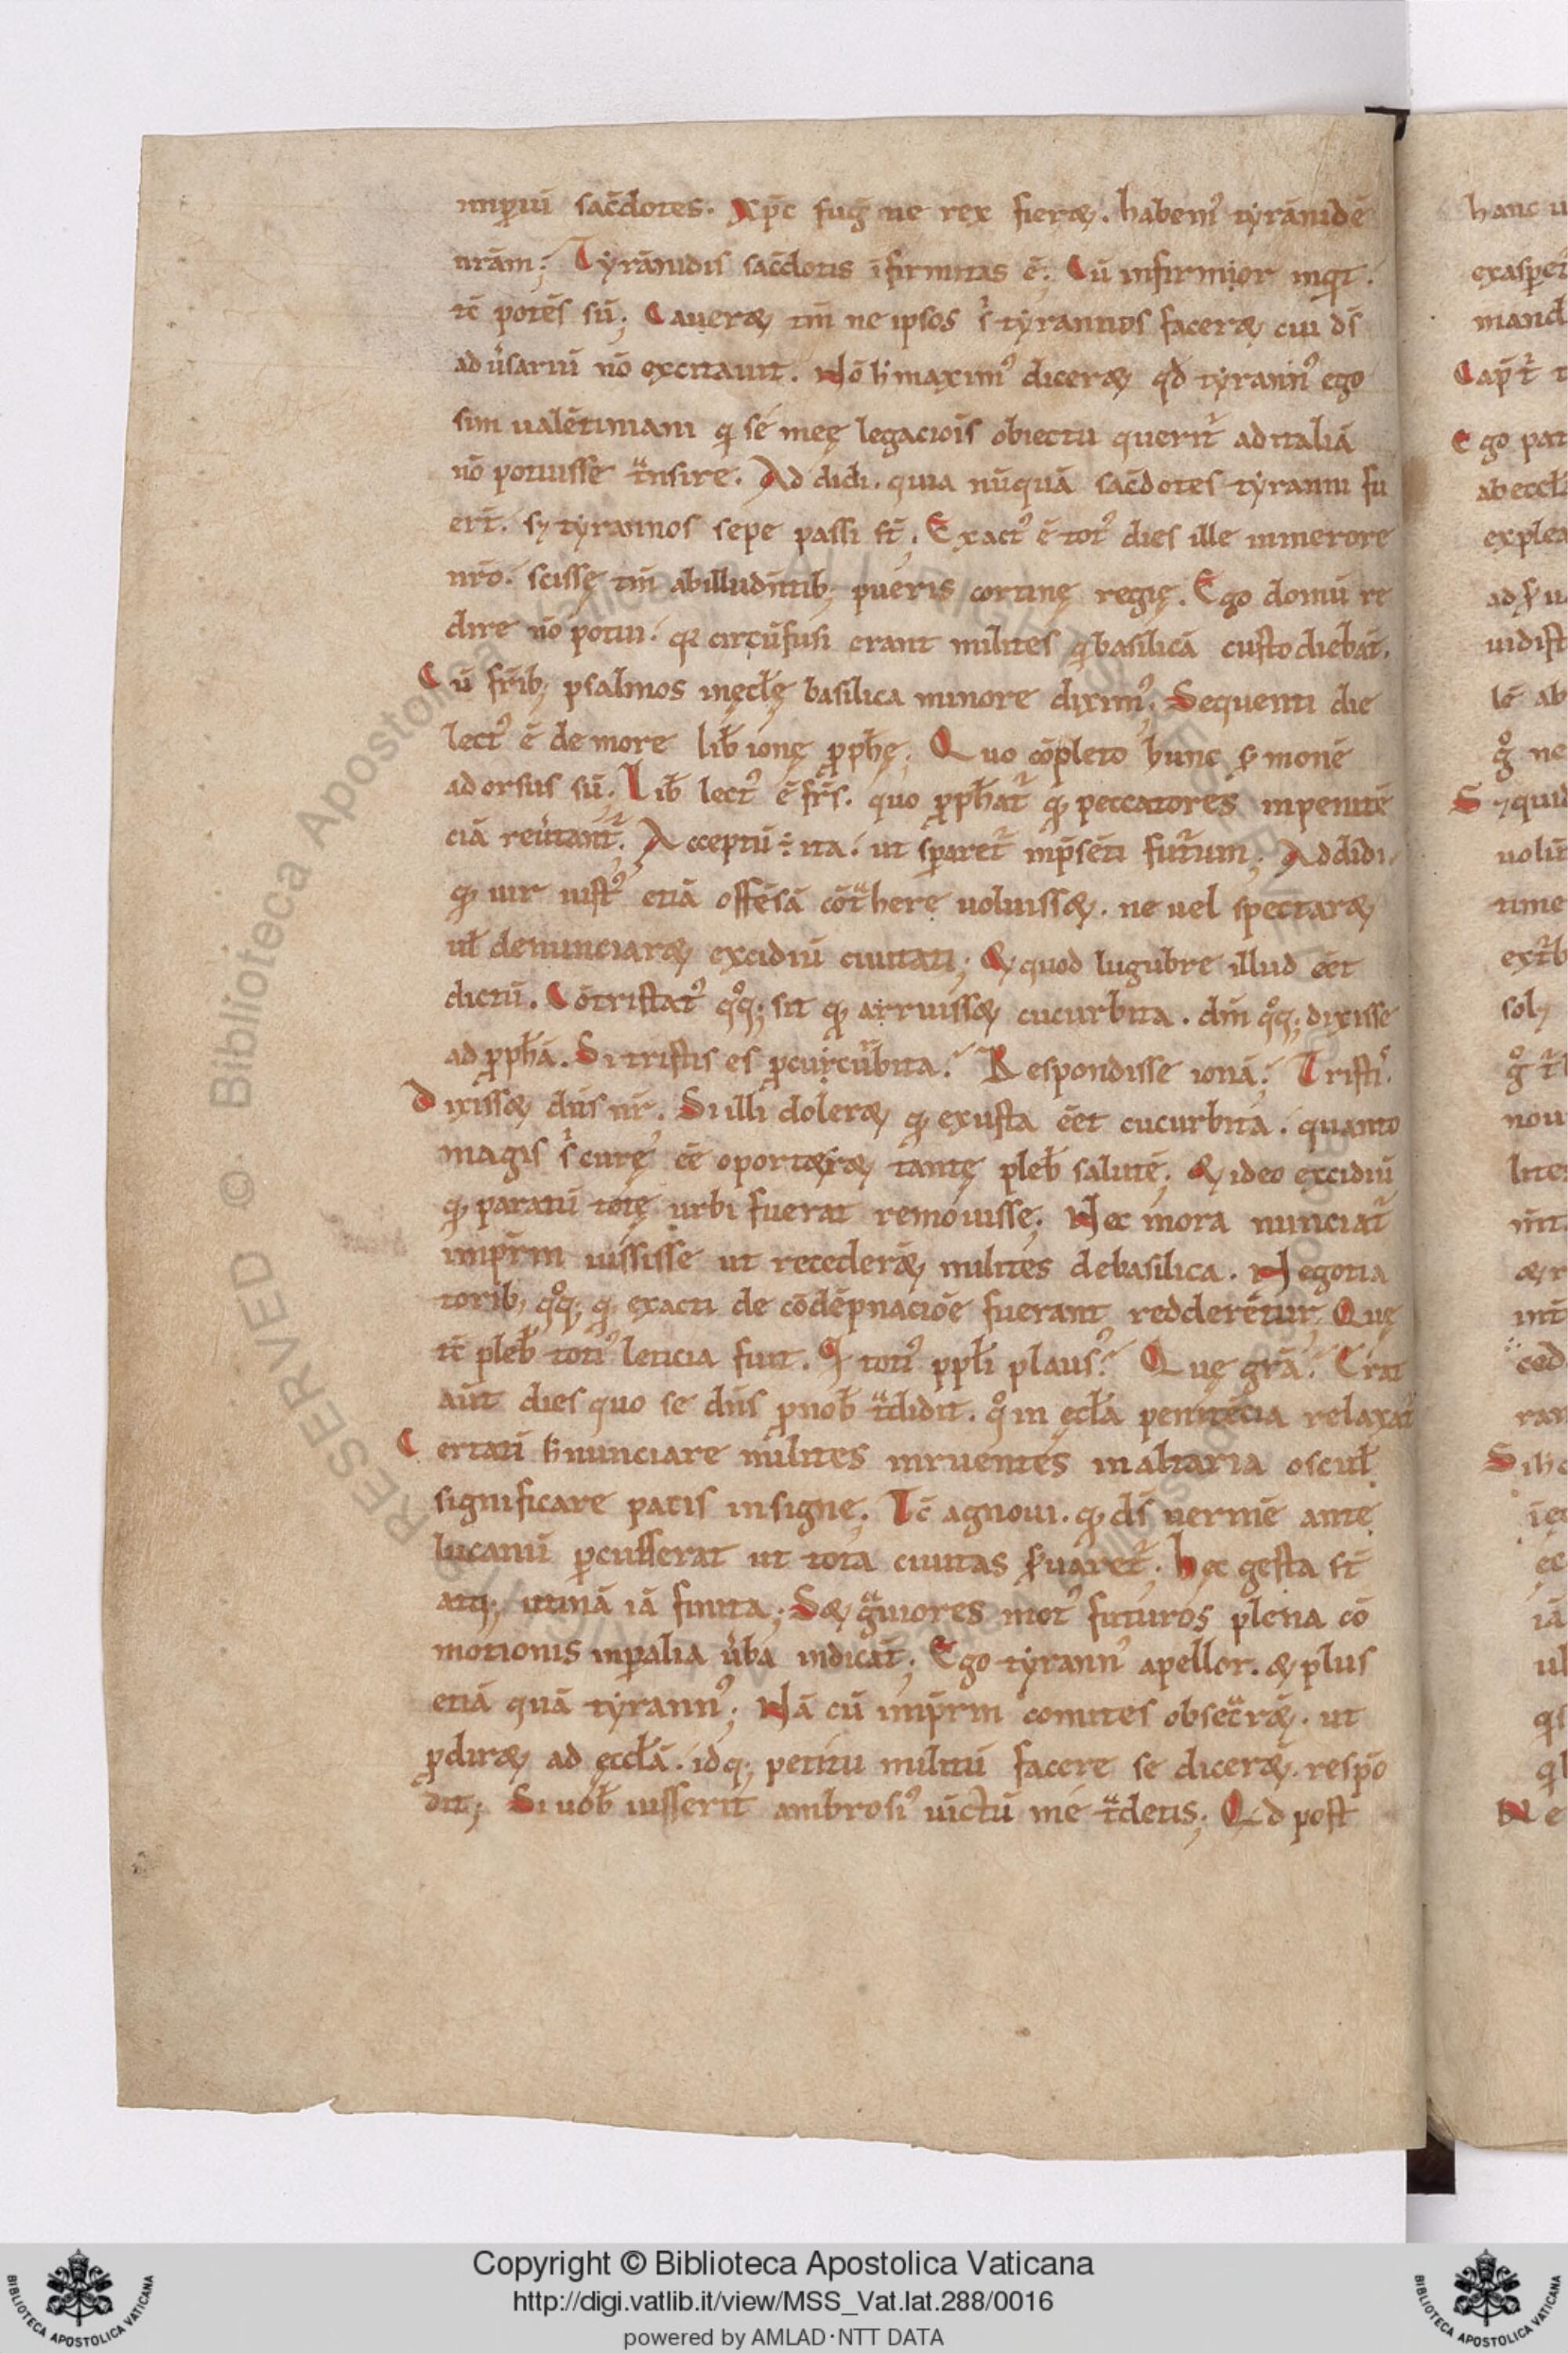 imꝑiū sac̄dotes. xp̄c fuḡ ne rex fieret. habem᷒ tyrānidē
nrām; Tyrānidis sac̄dotis īfirmitas ē; Cū infirmior inqͥt.
tc̄ potēs sū; Caueret tm̄ ne ipsos sͥ tyrannos faceret cui ds̄
adu͛sariū nō excitauit. Nō h͛ maxim᷒ diceret qd̄ tyrann᷒ ego
sim ualētiniani qͥ sé meę legaciōis obiectu querit᷑ ad italiā
nō potuisse tᷓnsire. Ad didi. quia nūquā sac̄dotes tyranni fu
ert̄. sꝫ tyrannos sepe passi st̄; Exact᷒ ē tot᷒ dies ille in merore
nrō. scissę tm̄ ab illudn̄tibꝫ pueris cortinę regię. Ego domū re
dire nō potui. qꝛ circūfusi erant milites qͥ basilicā custodiebāt.
Cū frībꝫ psalmos in ęcłę basilica minore dixim᷒; Sequenti die
lect᷒ ē de more lib̄ ionę ꝓph̄ę; Quo cōpleto hunc s͛monē
adorsus sū. Lib̄ lect᷒ ē fr̄s. quo ꝓph̄at᷑ qꝫ peccatores in penitē
ciā reu͛tant᷑; Acceptū÷ ita. ut sꝑaret᷑ in p̄sēti futᷓrum; Addidi.
qꝫ uir iust᷒ etiā offēsā cōtᷓhere uoluisset. ne uel spectaret
ut̄ denunciaret excidiū ciuitati; Et quod lugubre illud eēt
dictū. Cōtristat᷒ qͦqꝫ sit qꝫ arruisset cucurbita. dm̄ qͦqꝫ dixisse
ad ꝓph̄ā. Si tristis es ꝓ cucurbita? Respondisse ionā? Tristis.
Dixisset dn̄s nr̄. Si illi doleret qꝫ exusta eēt cucurbita. quanto
magis sͥ curę eē oporteret tantę pleb̄ salutē; et ideo excidiū
qꝫ paratū totę urbi fuerat remouisse; Nec mora nunciat᷑
imp̄rm iussisse ut recederēt milites de basilica. Negotia
toribꝫ qͦqꝫ qꝫ exacti de cōdēpnaciōe fuerant redderētur; Quę
tc̄ pleb̄ toti᷒ leticia fuit. Qͥ toti᷒ ppłi plaus᷒? Quę grā? Erat
aūt dies quo se dn̄s ꝓ nob̄ tᷓdidit. qͦ in ęcła penitēcia relaxat᷑
Certati h͛ nunciare milites inruentes in altaria oscuł
significare pacis insigne; Tc̄ agnoui. qꝫ ds̄ uermē ante
lucanū ꝑcusserat ut tota ciuitas s͛uaret᷑; hęc gesta st̄
atqꝫ utinā iā finita; Set gᷓuiores mot᷒ futuros plena cō
motionis inꝑalia u͛ba indicāt; Ego tyrann᷒ apellor. et plus
etiā quā tyrann᷒; Nā cū imp̄rm comites obsecrᷓēt. ut
ꝓdiret ad ęccłā. idqꝫ petitu militū facere se dicerēt. respō
dit; Si uob̄ iusserit ambrosi᷒ uictū me tᷓdetis; Qd post
hanc u
exasꝑet
mand
Ego pat
explea
uidist
lē ab
uolūt
time
solꝫ
nou
rar
Copyright © Biblioteca Apostolica Vaticana
http://digi.vatlib.it/view/MSS_Vat.lat.288/0016
powered by AMLAD·NTT DATA
BIBLIOTECA APOSTOLICA VATICANA
BIBLIOTECA APOSTOLICA VATICANA